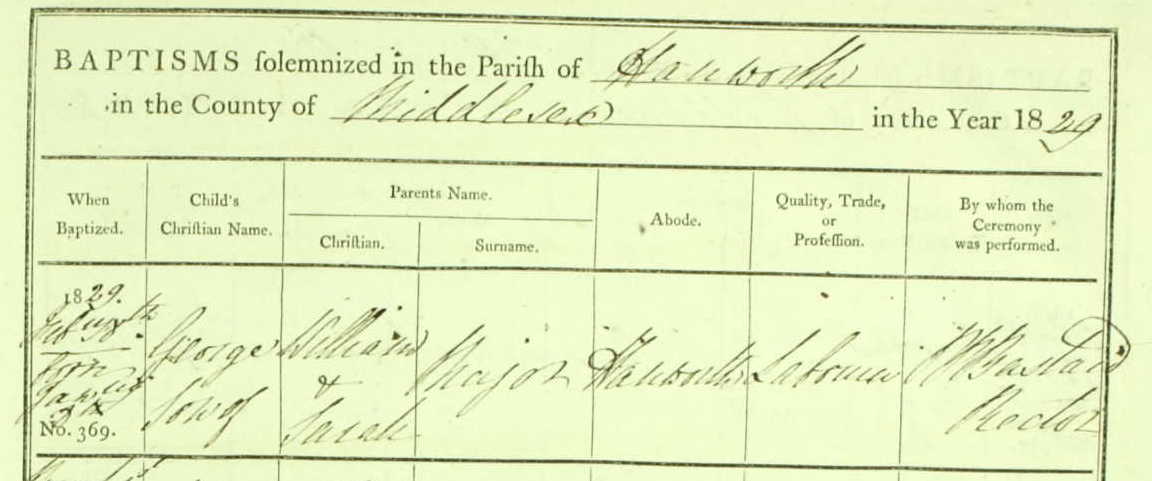 BAPTISMS solemnized in the Parish of Hanworth
in the County of Middlesex in the Year 1829
When Baptized.
Child's Christian Name.
Parents Name.
Christian.
Surname.
Abode.
Quality, Trade, or Profession.
By whom the Ceremony was performed.
1829.
born
No. 369.
George
Son of
William
&
Sarah
Major
Hanworth
Labourer
Rector